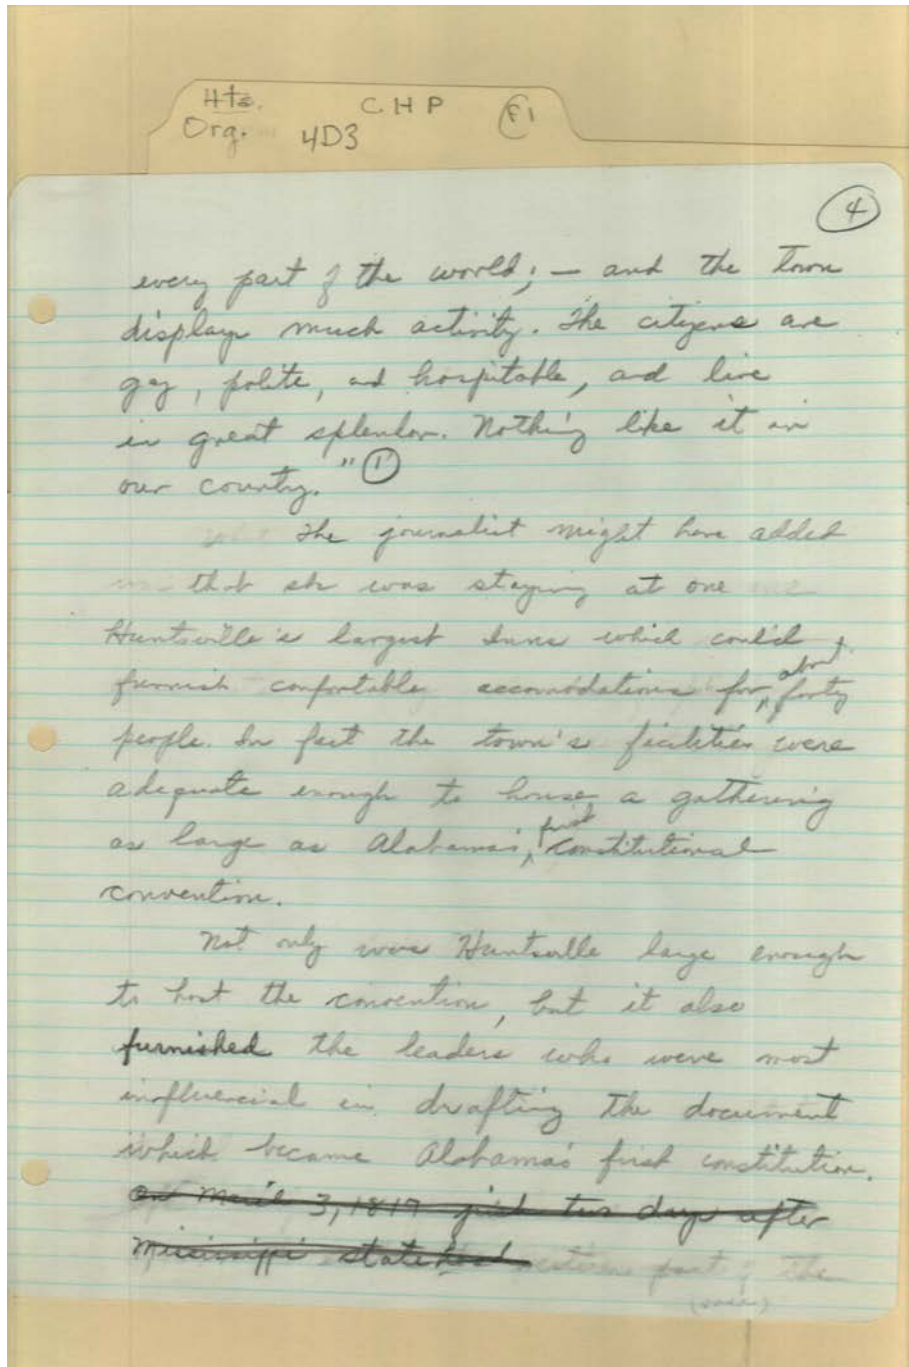 Hts. CHP F1
Org. 4D3
4
every part of the world; — and the town
displays much activity. The citizens are
gay, polite, and hospitable, and live
in great splendor. Nothing like it in
our country." 1
The journalist might have added
that she was staying at one
Huntsville's largest Inns which could
furnish comfortable accomodations for about forty
people. In fact the town's facilities were
adequate enough to house a gathering
as large as Alabama's first constitutional
convention.
Not only was Huntsville large enough
to host the convention, but it also
furnished the leaders who were most
influencial in drafting the document
which became Alabama's first constitution.
on March 3, 1817 just two days after
Mississippi statehood western part of the